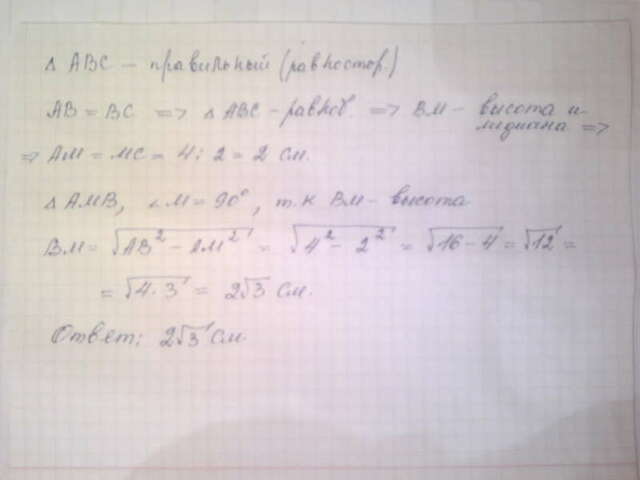 Δ ABC – правильный (равностор.)
AB = BC => Δ ABC – равноб. => BM – высота и
медиана =>
=> AM = MC = 4 : 2 = 2 см.
Δ AMB, ∠M = 90°, т.к BM – высота
BM = √(AB² – AM²) = √(4² – 2²) = √(16 – 4) = √12 =
= √(4·3) = 2√3 см.
Ответ: 2√3 см